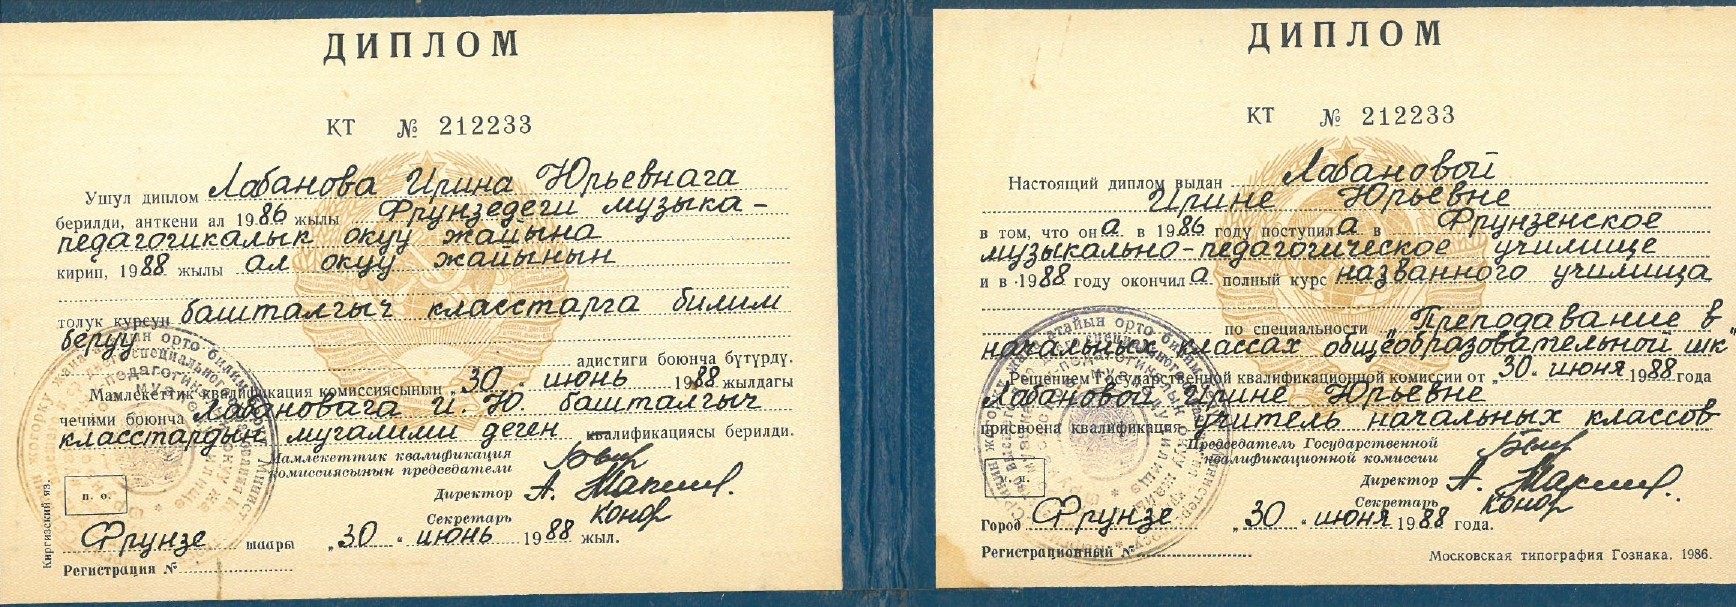 ДИПЛОМ
КТ № 212233
Ушул диплом Лабанова Ирина Юрьевнага
берилди, анткени ал 1986 жылы Фрунзедеги музыка-
педагогикалык окуу жайына
кирип, 1988 жылы ал окуу жайынын
толук курсун башталгыч класстарга билим
берүү
адистиги боюнча бүтүрдү.
Мамлекеттик квалификация комиссиясынын „30" июнь 1988 жылдагы
чечими боюнча Лабановага И. Ю. башталгыч
класстардын мугалими деген квалификациясы берилди.
Мамлекеттик квалификация
комиссиясынын председатели
Директор
Секретарь
п. о.
Фрунзе шаары „30" июнь 1988 жыл.
Регистрация №
Киргизский яз.
ДИПЛОМ
КТ № 212233
Настоящий диплом выдан Лабановой
Ирине Юрьевне
в том, что она в 1986 году поступила в Фрунзенское
музыкально-педагогическое училище
и в 1988 году окончила полный курс названного училища
по специальности „Преподавание в
начальных классах общеобразовательной шк"
Решением Государственной квалификационной комиссии от „30" июня 1988 года
Лабановой Ирине Юрьевне
присвоена квалификация учитель начальных классов
Председатель Государственной
квалификационной комиссии
Директор
Секретарь
Город Фрунзе „30" июня 1988 года.
Регистрационный №
Московская типография Гознака. 1986.